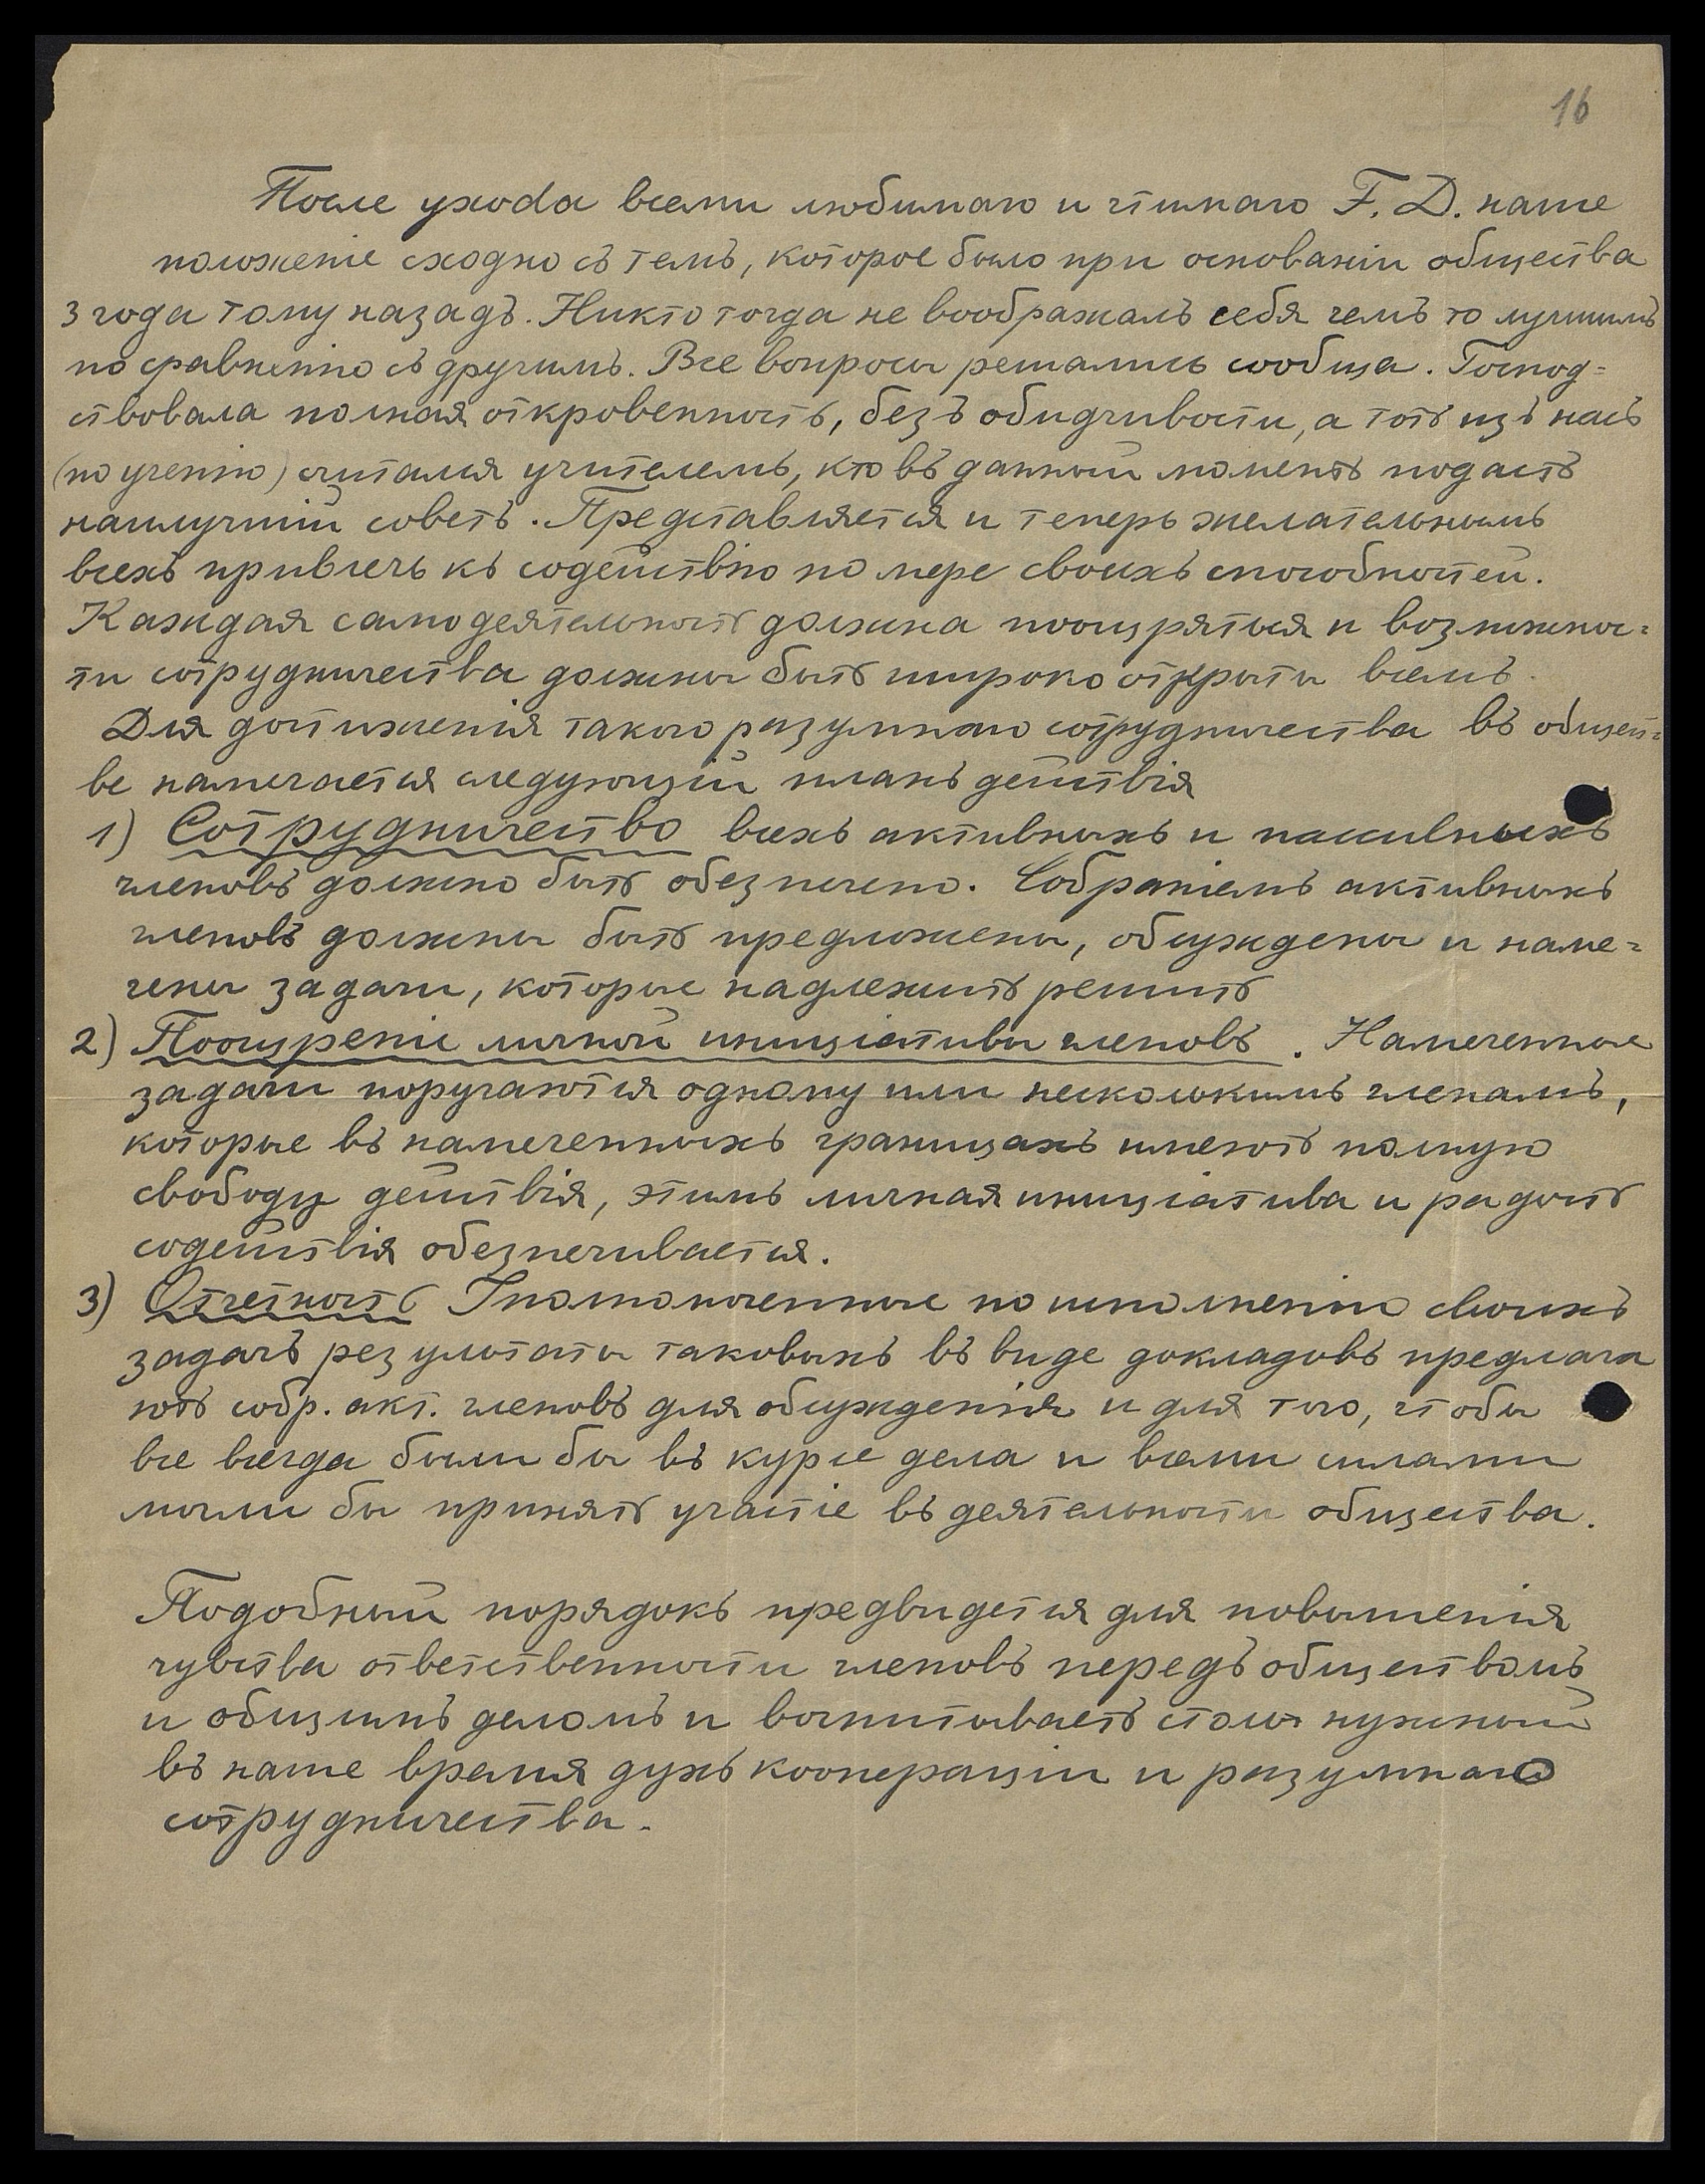 16
После ухода всеми любимаго и чтимаго F. D. наше
положеніе сходно съ темъ, которое было при основаніи общества
3 года тому назадъ. Никто тогда не воображалъ себя чемъ то лучшимъ
по сравненію съ другимъ. Все вопросы решались сообща. Господ=
ствовала полная откровенность, безъ обидчивости, а тотъ изъ насъ
(по ученію) считался учителемъ, кто въ данный моментъ подастъ
наилучшій советъ. Представляется и теперь желательнымъ
всехъ привлечь къ содействію по мере своихъ способностей.
Каждая самодеятельность должна поощряться и возможнос=
ти сотрудничества должны быть широко открыты всемъ.
Для достиженія такого разумнаго сотрудничества въ общест=
ве намечается следующій планъ действія
1) Сотрудничество всехъ активныхъ и пассивныхъ
членовъ должно быть обезпечено. Собраніемъ активныхъ
членовъ должны быть предложены, обсуждены и наме=
чены задачи, которые надлежитъ решить
2) Поощреніе личной инициативы членовъ. Намеченные
задачи поручаются одному или несколькимъ членамъ,
которые въ намеченныхъ границахъ имеютъ полную
свободу действія, этимъ личная инициатива и радость
содействія обезпечивается.
3) Отчетность Уполномоченные по исполненію своихъ
задачъ результаты таковыхъ въ виде докладовъ предлага
ютъ собр. акт. членовъ для обсужденія и для того, чтобы
все всегда были бы въ курсе дела и всеми силами
могли бы принять участіе въ деятельности общества.
Подобный порядокъ предвидется для повышенія
чувства ответственности членовъ передъ обществомъ
и общимъ деломъ и воспитываетъ столь нужный
въ наше время духъ коопераціи и разумнаго
сотрудничества.